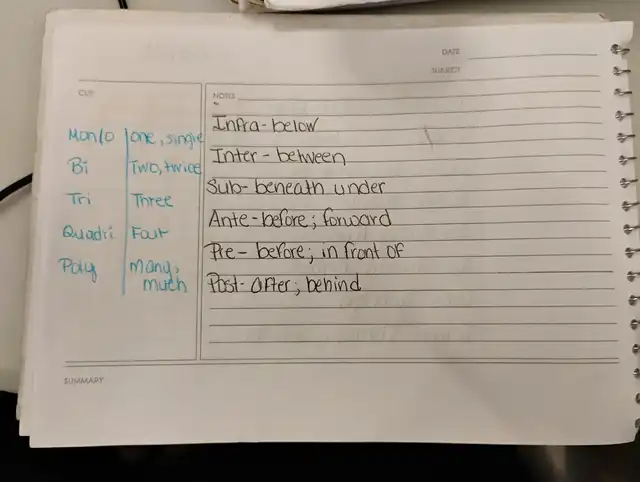 DATE
SUBJECT
CUE
NOTES
Mon/o one, single
Bi Two, twice
Tri Three
Quadri Four
Poly many,
much
Infra - below
Inter - between
Sub - beneath under
Ante - before; forward
Pre - before; in front of
Post - after; behind
SUMMARY